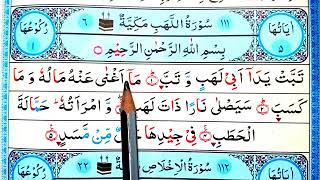 اٰيَاتُهَا ٥ ١١١ سُوْرَةُ اللَّهَبِ مَكِّيَّةٌ ٦ رُكُوْعُهَا ١
بِسْمِ اللّٰهِ الرَّحْمٰنِ الرَّحِيْمِ
تَبَّتْ يَدَاۤ اَبِيْ لَهَبٍ وَّ تَبَّ ۝١ مَاۤ اَغْنٰى عَنْهُ مَالُهٗ وَ مَا
كَسَبَ ۝٢ سَيَصْلٰى نَارًا ذَاتَ لَهَبٍ ۝٣ وَّ امْرَاَتُهٗ ؕ حَمَّالَةَ
الْحَطَبِ ۝٤ فِيْ جِيْدِهَا حَبْلٌ مِّنْ مَّسَدٍ ۝٥
اٰيَاتُهَا ١١٢ سُوْرَةُ الْاِخْلَاصِ ٢٢ رُكُوْعُهَا